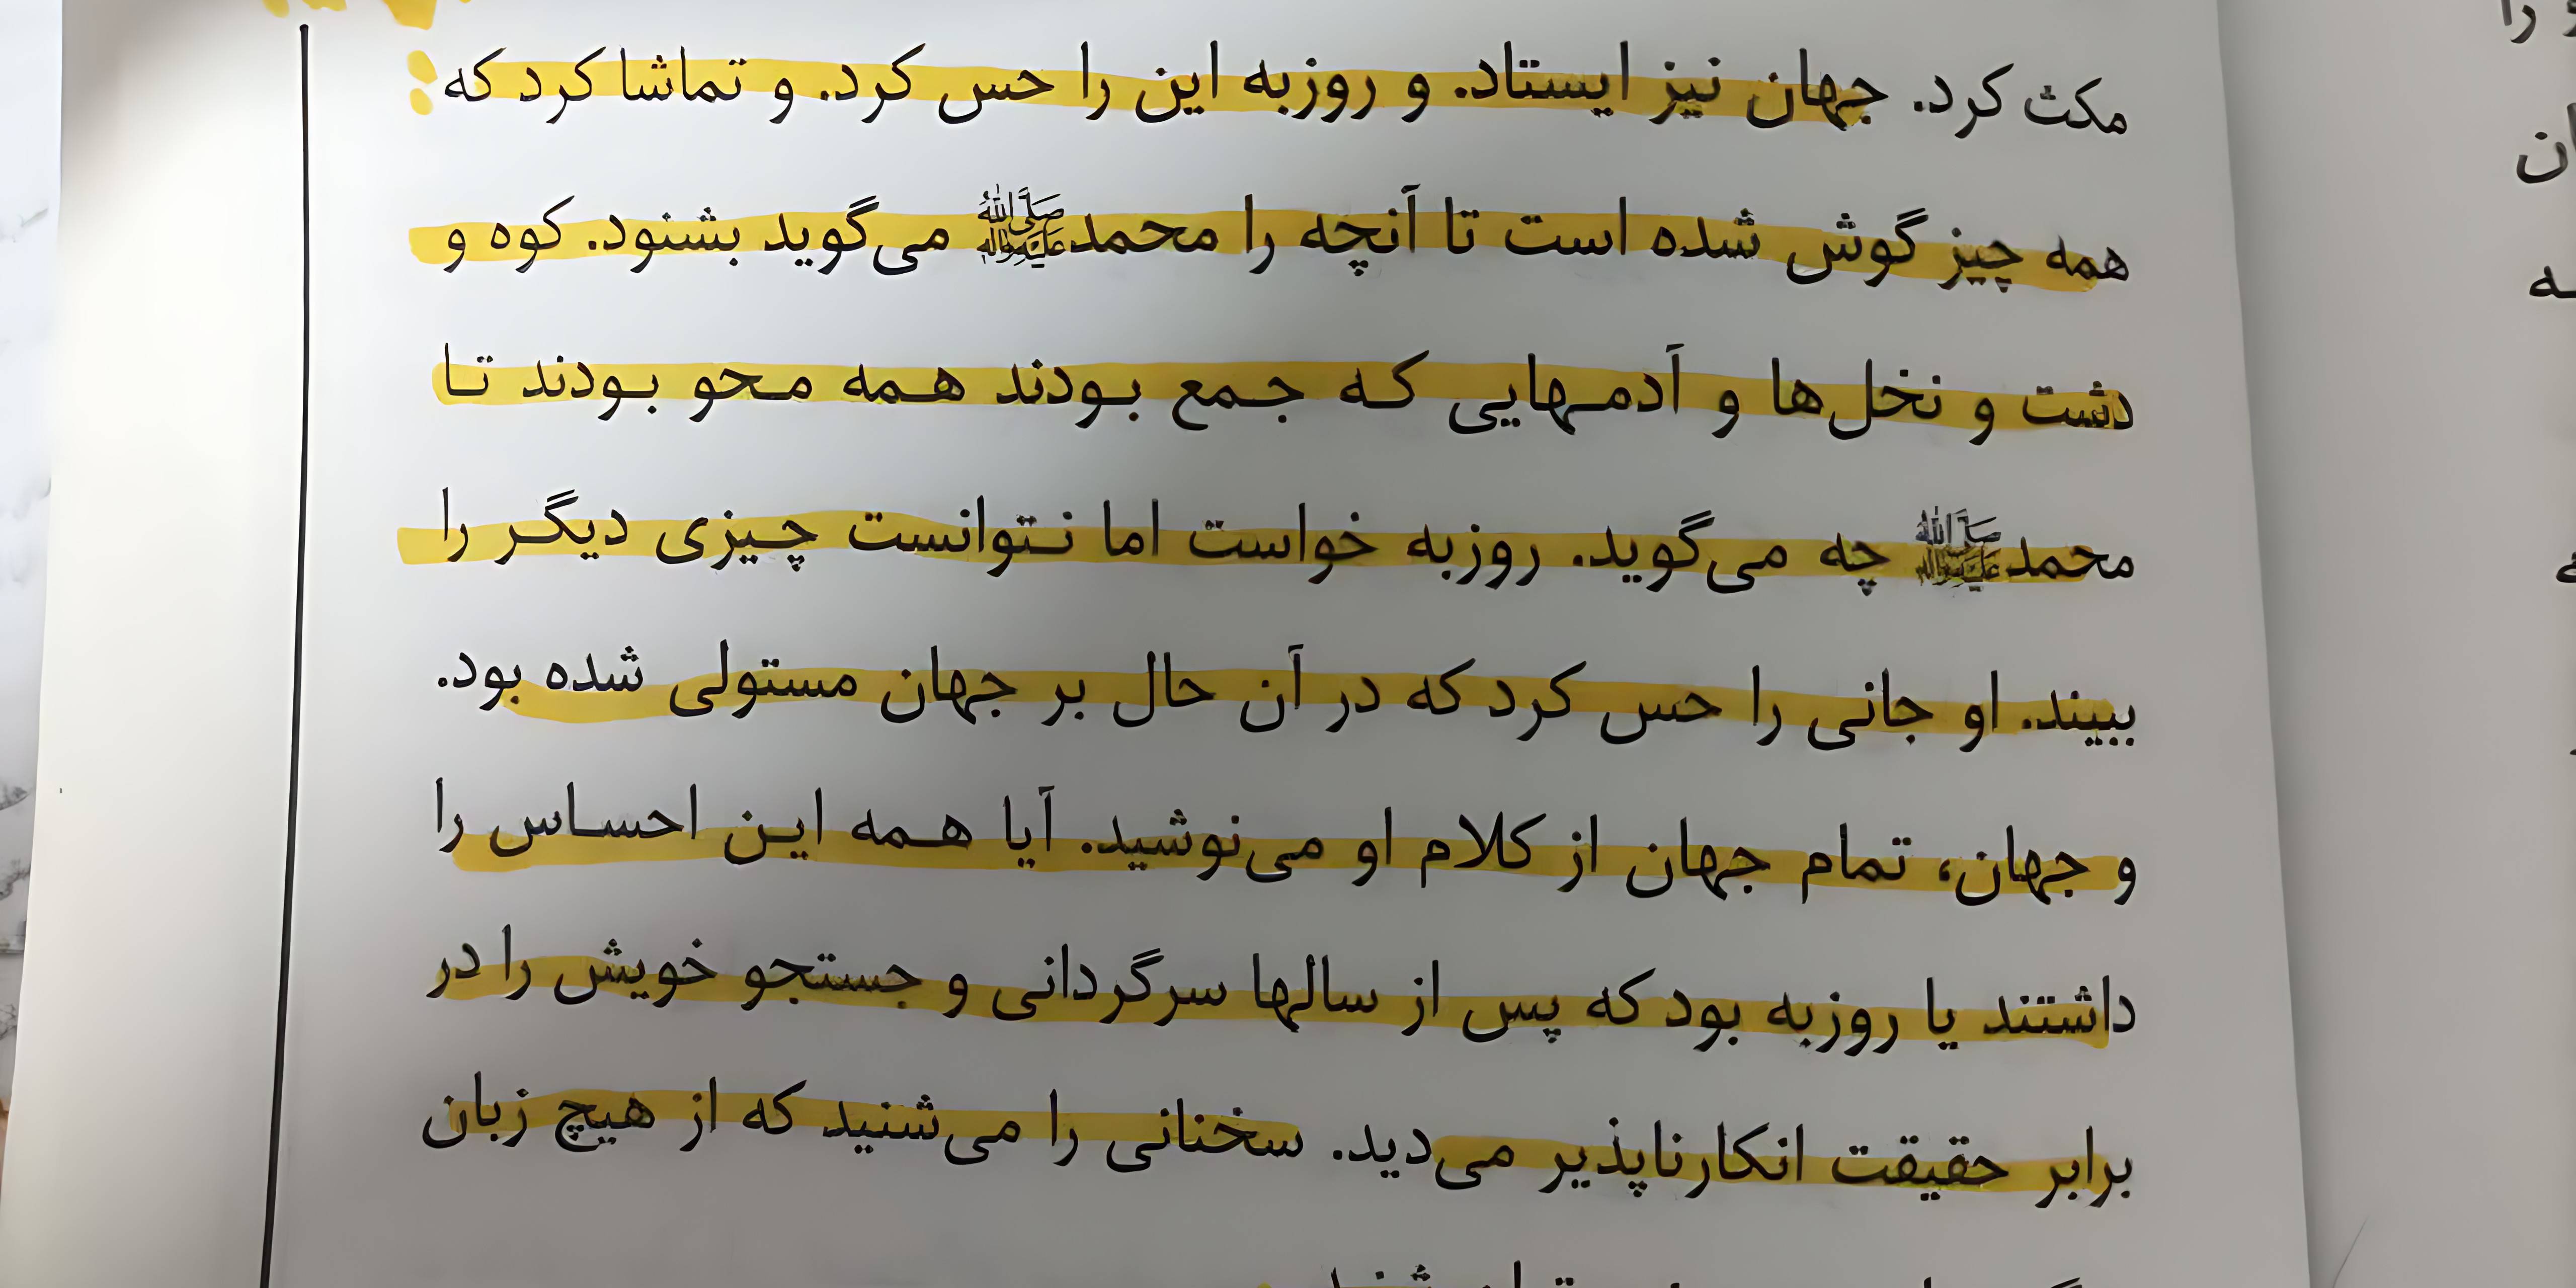 مکث کرد. جهان نیز ایستاد. و روزبه این را حس کرد. و تماشا کرد که
همه چیز گوش شده است تا آنچه را محمدﷺ می‌گوید بشنود. کوه و
دشت و نخل‌ها و آدمـهایی کـه جـمع بـودند هـمه مـحو بـودند تـا
محمدﷺ چه می‌گوید. روزبه خواست اما نـتوانست چـیزی دیگـر را
ببیند. او جانی را حس کرد که در آن حال بر جهان مستولی شده بود.
و جهان، تمام جهان از کلام او می‌نوشید. آیا هـمه ایـن احسـاس را
داشتند یا روزبه بود که پس از سالها سرگردانی و جستجو خویش را در
برابر حقیقت انکارناپذیر می‌دید. سخنانی را می‌شنید که از هیچ زبان
را
ان